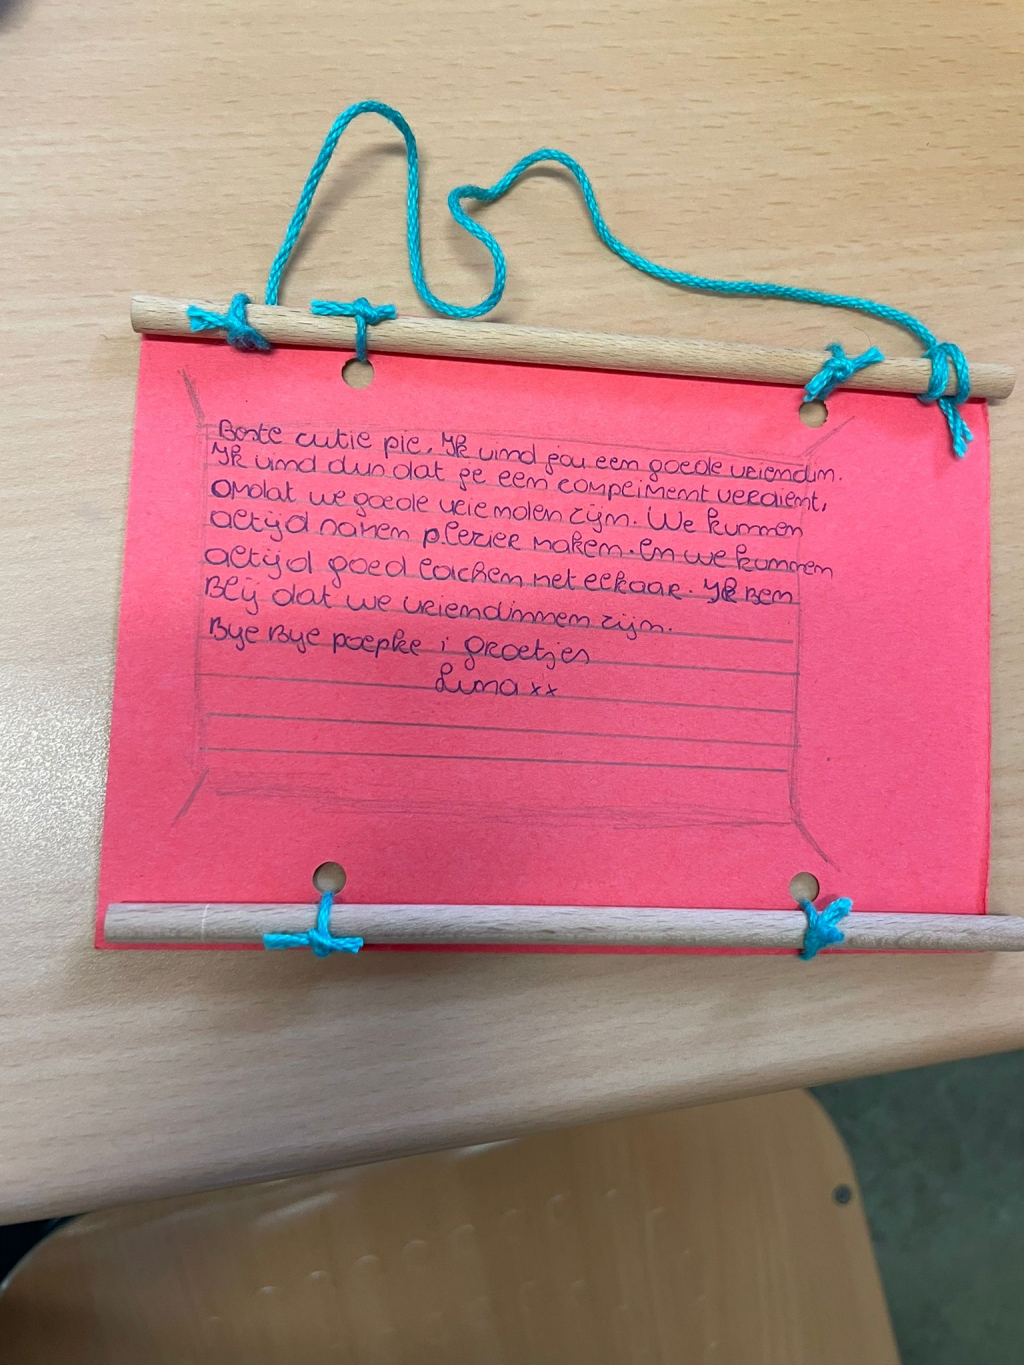 Beste cutie pie. Ik vind jou een goede vriendin.
Ik vind dus dat je een compliment verdient,
omdat we goede vrienden zijn. We kunnen
altijd samen plezier maken. En we kunnen
altijd goed lachen met elkaar. Ik Ben
Blij dat we vriendinnen zijn.
Bye Bye poepke ; groetjes
Luna xx